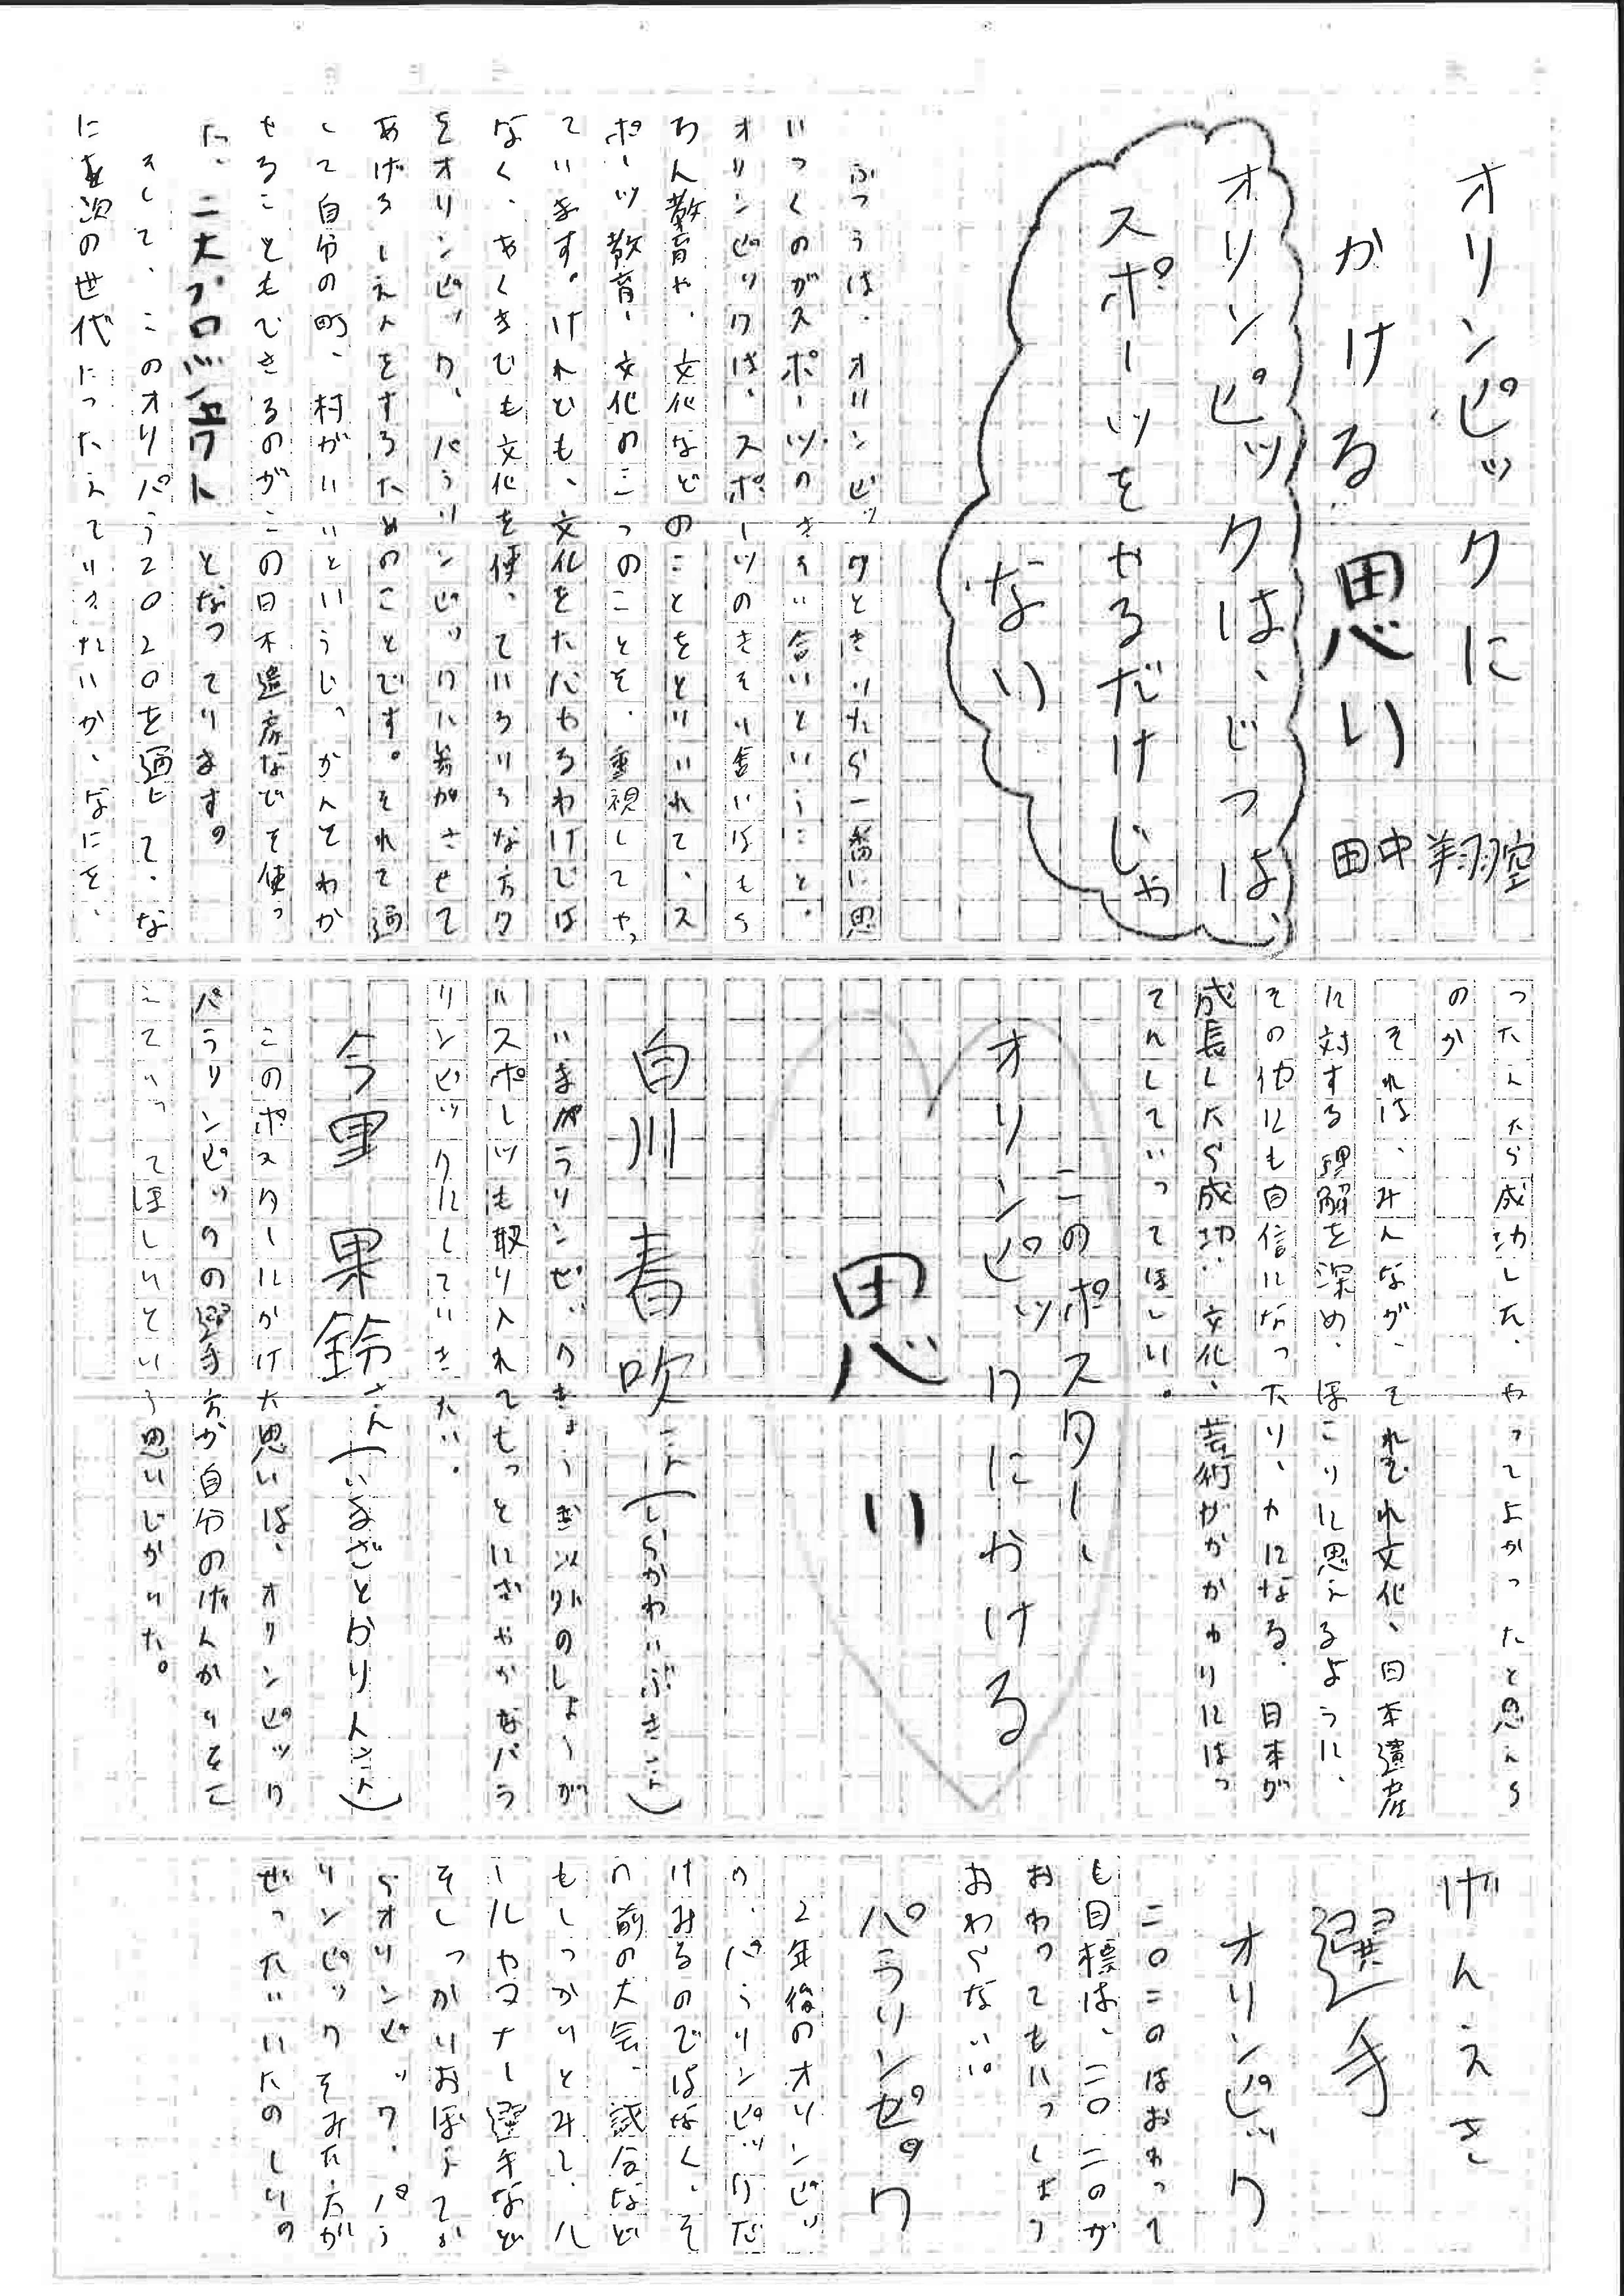 オリンピックに
かける思い
田中翔空
オリンピックは、じつは、
スポーツをやるだけじゃ
ない
ふつうは、オリンピックときいたら一番に思
いつくのがスポーツのきそい合いということ。
オリンピックは、スポーツのきそい合いはもち
ろん教育や、文化などのことをとりいれて、ス
ポーツ教育、文化の二つのことを、重視してやっ
ています。けれども、文化をただやるわけでは
なく、あくまでも文化を使っていろいろな方ク
をオリンピック、パラリンピックに参かさせて
あげるしえんをするためのことです。それで通
して自分の町、村がいいというじっかんをわか
せることもできるのがこの日本遺産などを使っ
た、二大プロジェクトとなっています。
そして、このオリパラ2020を通して、な
にを次の世代につたえていきたいか、なにを、
ったえたら成功した、やってよかったと思える
のか
それは、みんなが、それぞれ文化、日本遺産
に対する理解を深め、ほこりに思えるように、
その他にも自信になったり、力になる。日本が
成長したら成功。文化、芸術がかかわりにはっ
てんしていってほしい。
このポスター、
オリンピックにかける
思い
白川春吹さん(しらかわいぶきさん)
いまパラリンピックきょうぎ以外のしょうが
いスポーツも取り入れてもっとにぎやかなパラ
リンピックにしていきたい。
今里 果鈴さん(いまざとかりんさん)
このポスターにかけた思いは、オリンピック
パラリンピックの選手方が自分のげんかいをこ
えていってほしいという思いじがいた。
げんえき
選手
オリンピック
二〇二〇はおわって
も目標は、二〇二〇が
おわってもいっしょう
おわらない。
パラリンピック
2年後のオリンピッ
ク、パラリンピックだ
けみるのではなく、そ
の前の大会、試合など
もしっかりとみて、ル
ールやマナー選手など
をしっかりおぼえてか
らオリンピック、パラ
リンピックをみた方が
ぜったいにたのしい。